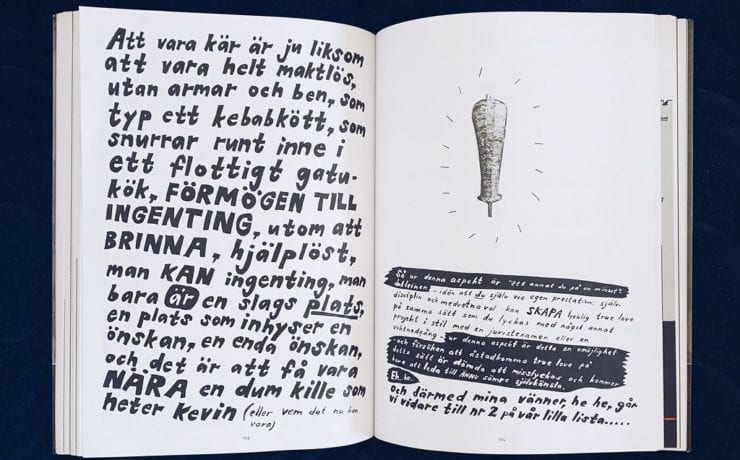 Att vara kär är ju liksom
att vara helt maktlös,
utan armar och ben, som
typ ett kebabkött, som
snurrar runt inne i
ett flottigt gatu-
kök, FÖRMÖGEN TILL
INGENTING, utom att
BRINNA, hjälplöst,
man KAN ingenting, man
bara är en slags plats,
en plats som inhyser en
önskan, en enda önskan,
och det är att få vara
NÄRA en dum kille som
heter Kevin (eller vem det nu kan
vara)
114
Så ur denna aspekt är "ett annat du på en minut"-
doktrinen - idén att du själv via egen prestation: själv-
disciplin och medvetna val kan SKAPA lycklig true love
på samma sätt som du lyckas med något annat
projekt i stil med en juristexamen eller en
viktnedgång - ur denna aspekt är detta en omöjlighet
och försöken att åstadkomma true love på
detta sätt är dömda att misslyckas och kommer
bara att leda till ÄNNU sämre självkänsla.
Och därmed mina vänner, he he, går
vi vidare till nr 2 på vår lilla lista.....
115